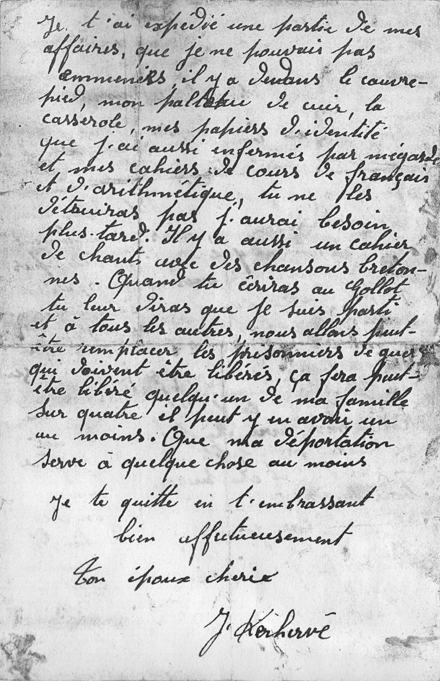 Je t'ai expédié une partie de mes
affaires, que je ne pouvais pas
emmenées, il y a dedans le couvre-
pied, mon paletau de cuir, la
casserole, mes papiers d'identité
que j'ai aussi enfermés par mégarde
et mes cahiers de cours de français
et d'arithmétique, tu ne les
détruiras pas j'aurai besoin
plus-tard. Il y a aussi un cahier
de chants avec des chansons breton-
nes. Quand tu écriras au Gollot
tu leur diras que je suis parti
et à tous les autres, nous allons peut-
être remplacer, les prisonniers de guer
qui doivent être libérés, ça fera peut-
être libéré quelqu'un de ma famille
sur quatre il peut y en avoir un
au moins. Que ma déportation
serve à quelque chose au moins
Je te quitte en t'embrassant
bien affectueusement
Ton époux cherie
J. Kerhervé